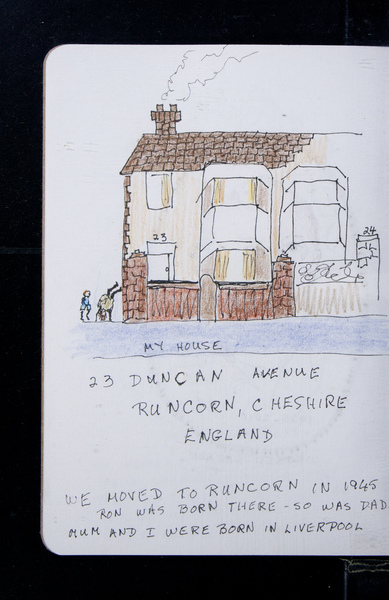 23
24
MY HOUSE
23 DUNCAN AVENUE
RUNCORN, CHESHIRE
ENGLAND
WE MOVED TO RUNCORN IN 1945
RON WAS BORN THERE - SO WAS DAD
MUM AND I WERE BORN IN LIVERPOOL